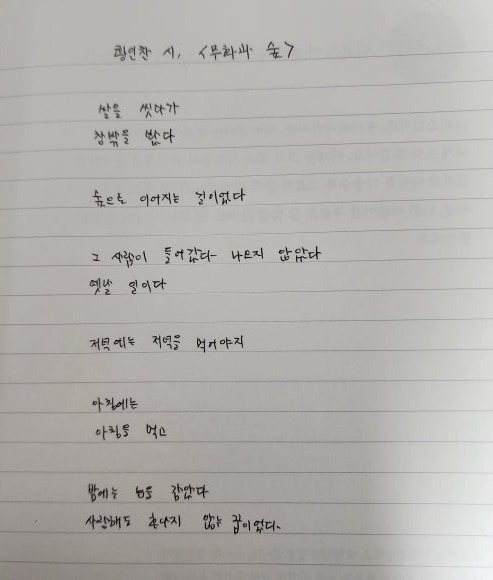 황인찬 시, <무화과 숲>
쌀을 씻다가
창밖을 봤다
숲으로 이어지는 길이었다
그 사람이 들어갔다 나오지 않았다
옛날 일이다
저녁에는 저녁을 먹어야지
아침에는
아침을 먹고
밤에는 눈을 감았다
사랑해도 혼나지 않는 꿈이었다.